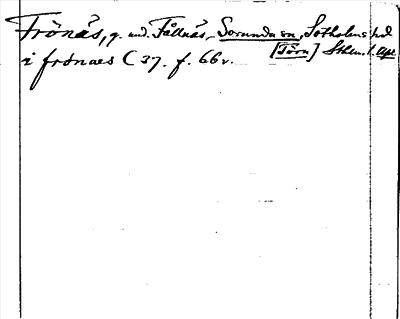 Frönäs, g. und. Fållnäs, Sorunda sn, Sotholms hd
[Törn] Sthlm. l.
i frönaes C 37. f. 66 v.